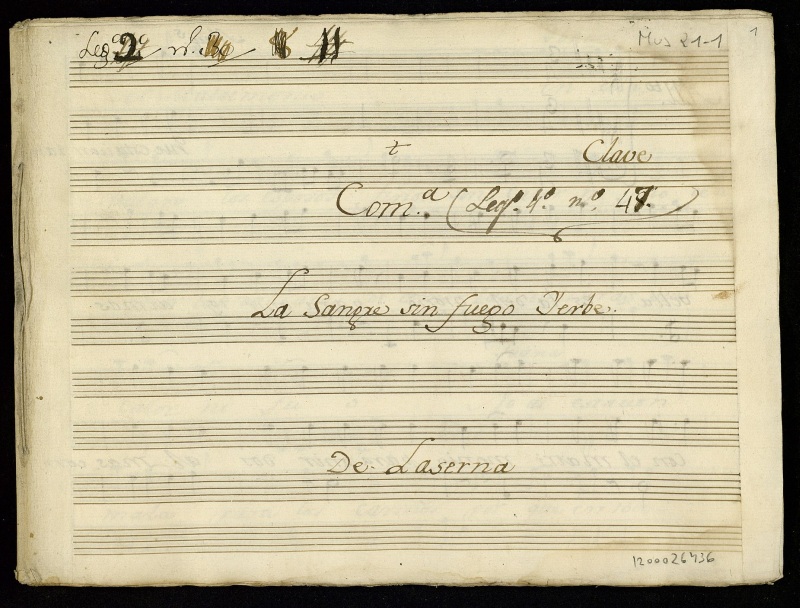 Mus 21-1
1
Leg.º 2 nº
11
t
Clave
Com.ª (Legº. 4º. nº. 47.)
La Sangre sin fuego Yerbe.
De Laserna
1200026736